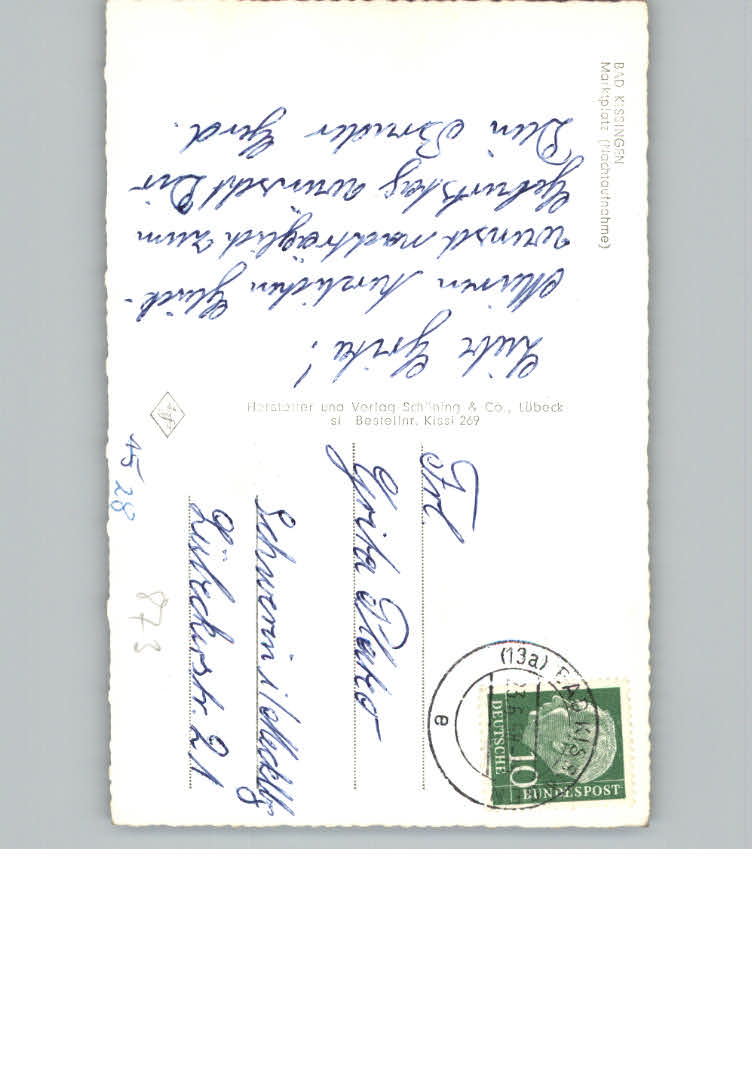 BAD KISSINGEN
Marktplatz (Nachtaufnahme)
Liebe Grita!
Meinen herzlichen Glück-
wunsch nachträglich zum
Geburtstag wünscht Dir
Dein Bruder Gerd.
Hersteller und Verlag Schöning & Co., Lübeck
si Bestellnr. Kissi 269
Frl.
Grita
Schwerin i/Mecklbg
Lübeckerstr. 21
(13a) BAD KISS
a
DEUTSCHE
BUNDESPOST
10
15 28
873